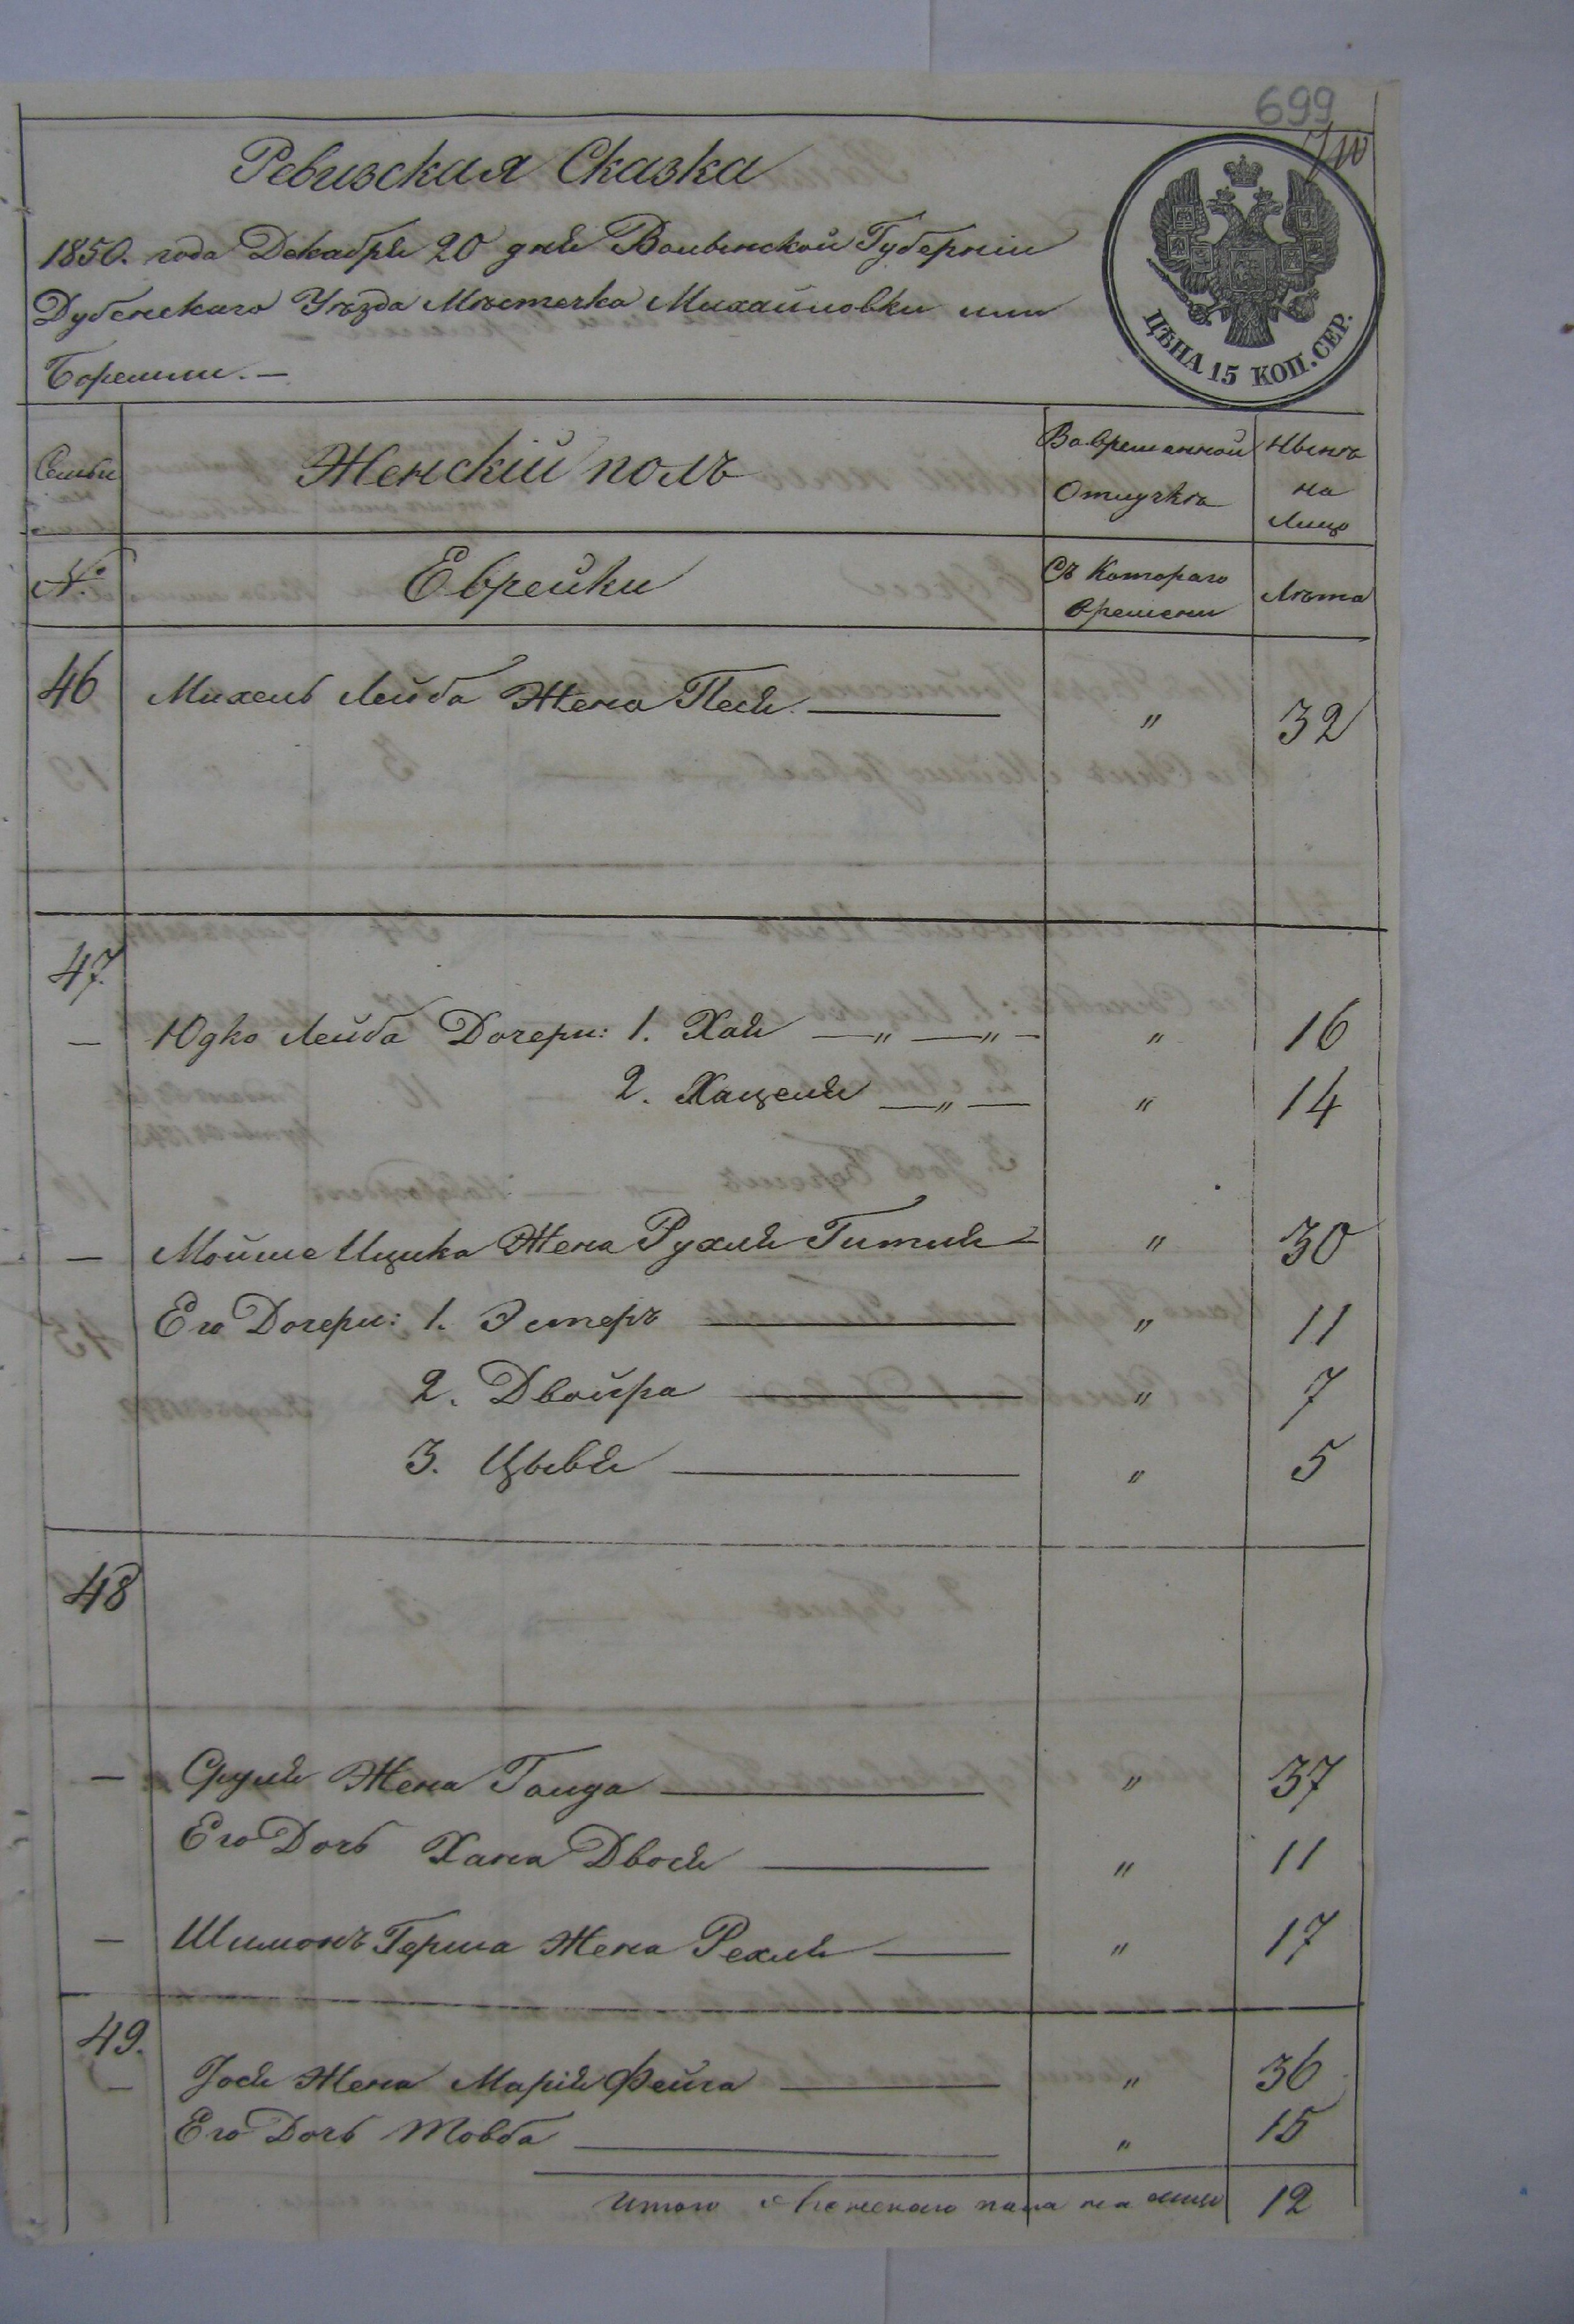 699
Ревизская Сказка
1850. года Декабря 20 дня Волынской Губерніи
Дубенскаго Уѣзда Мѣстечка Михайловки или
Боремли. —
ЦѢНА 15 КОП. СЕР.
Семьи
Женскій полъ
Во временной Отлучкѣ
Нынѣ на Лицо
№
Еврейки
Съ Котораго времени
Лѣта
46 Михель Лейба Жена Песя — " 32
47.
— Юдко Лейба Дочери: 1. Хая —"—"— " 16
2. Хацеля —"— " 14
— Мойше Ицика Жена Рухля Гитля — " 30
Его Дочери: 1. Эстеръ — " 11
2. Двойра — " 7
3. Цывья — " 5
48
— Сруля Жена Голда — " 37
Его Дочь Хана Двося — " 11
— Шимонъ Герша Жена Рехля — " 17
49.
— Јося Жена Марія Фейга — " 36
Его Дочь Товба — " 15
Итого Женскаго пола на лицо 12